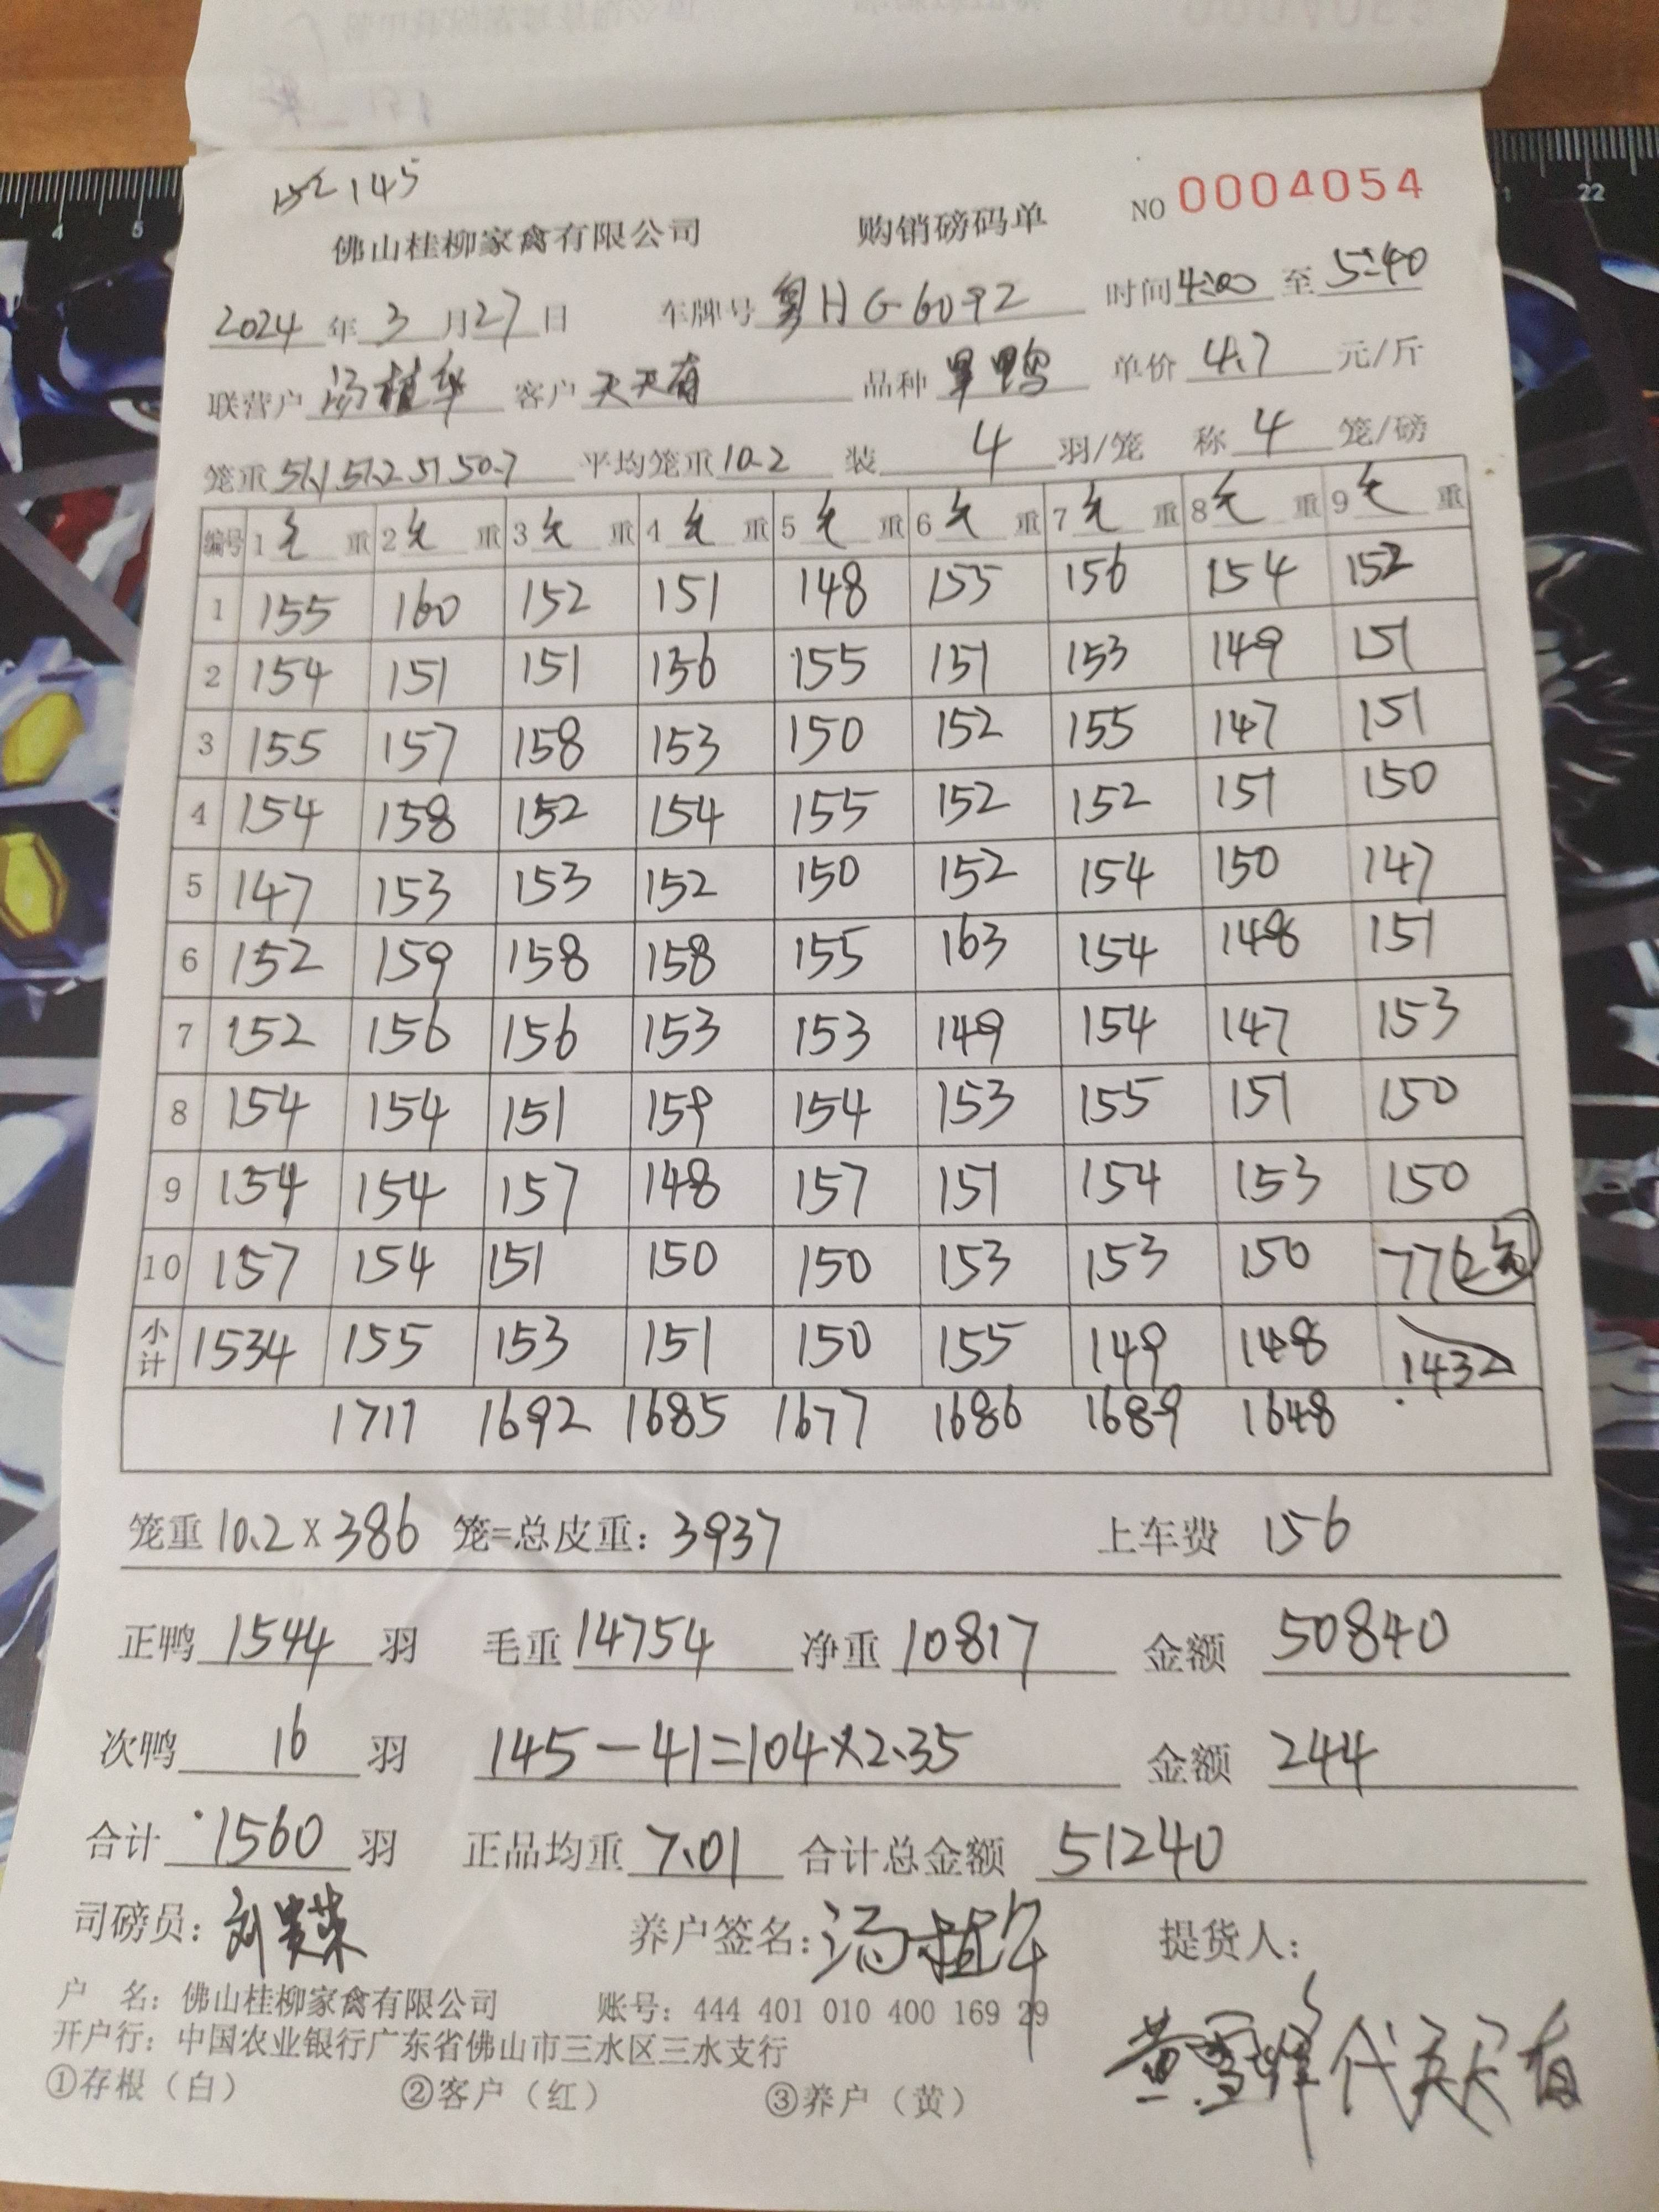 152 145
佛山桂柳家禽有限公司 购销磅码单 NO 0004054
2024 年 3 月 27 日 车牌号 粤HG6092 时间 4:00 至 5:40
联营户 汤植华 客户 天天有 品种 旱鸭 单价 4.7 元/斤
笼重 51.1 51.2 51 50.7 平均笼重 10.2 装 4 羽/笼 称 4 笼/磅
编号 1 毛 重 2 毛 重 3 毛 重 4 毛 重 5 毛 重 6 毛 重 7 毛 重 8 毛 重 9 毛 重
1 155 160 152 151 148 155 156 154 152
2 154 151 151 156 155 151 153 149 151
3 155 157 158 153 150 152 155 147 151
4 154 158 152 154 155 152 152 151 150
5 147 153 153 152 150 152 154 150 147
6 152 159 158 158 155 163 154 148 151
7 152 156 156 153 153 149 154 147 153
8 154 154 151 159 154 153 155 151 150
9 154 154 157 148 157 151 154 153 150
10 157 154 151 150 150 153 153 150 77
小计 1534 155 153 151 150 155 149 148 1432
1711 1692 1685 1677 1686 1689 1648
笼重 10.2×386 笼=总皮重: 3937 上车费 156
正鸭 1544 羽 毛重 14754 净重 10817 金额 50840
次鸭 16 羽 145-41=104×2.35 金额 244
合计 1560 羽 正品均重 7.01 合计总金额 51240
司磅员: 刘贵荣 养户签名: 汤植华 提货人:
户 名: 佛山桂柳家禽有限公司 账号: 444 401 010 400 169 29
开户行: 中国农业银行广东省佛山市三水区三水支行
黄雪锋代天天有
①存根（白） ②客户（红） ③养户（黄）